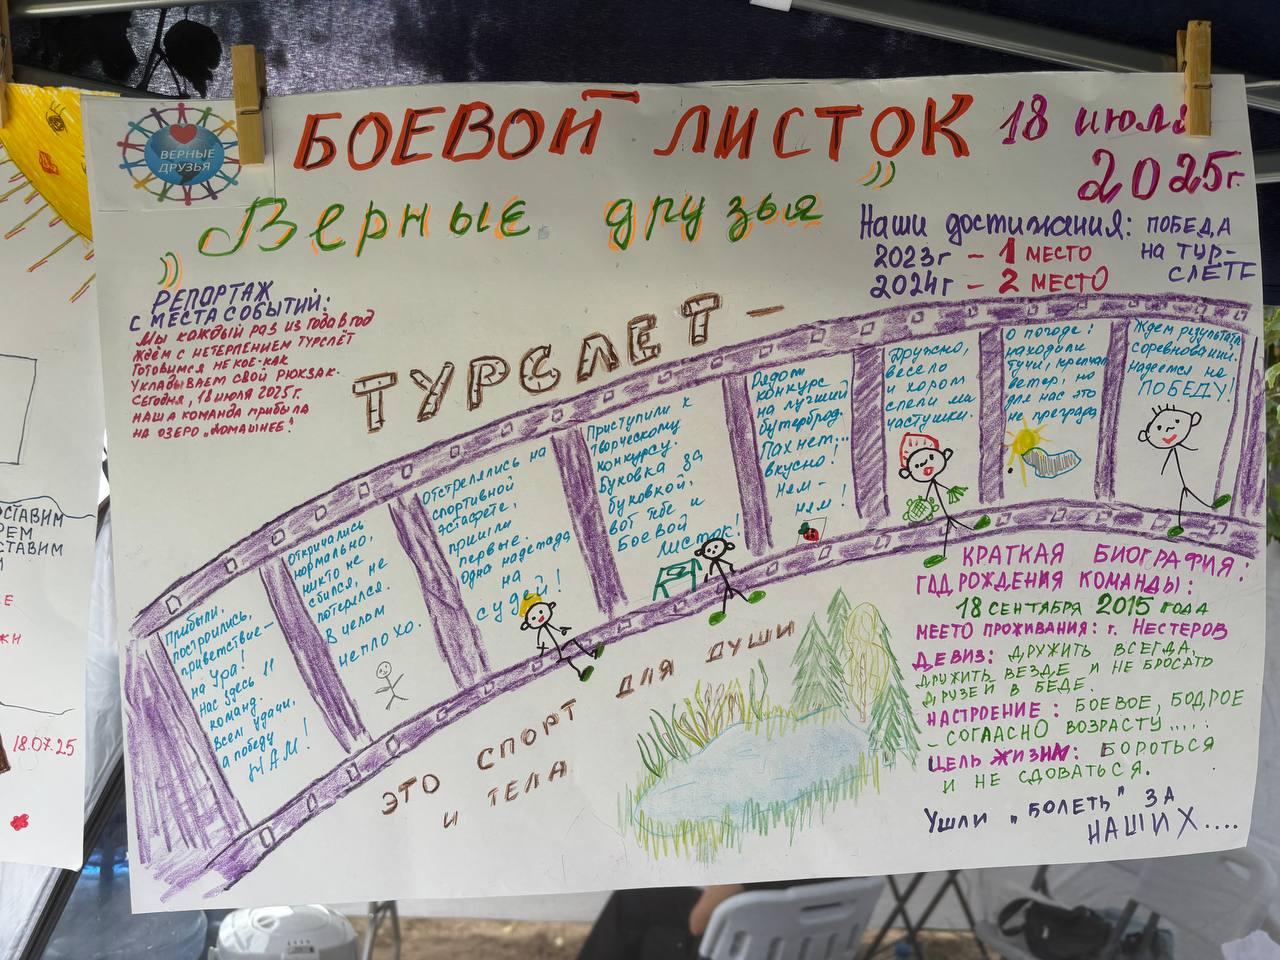 ВЕРНЫЕ
ДРУЗЬЯ
БОЕВОЙ ЛИСТОК
18 июля
2025г.
Верные друзья
Наши достижания: ПОБЕДА
НА ТУР-
СЛЁТЕ
2023г – 1 МЕСТО
2024г – 2 МЕСТО
РЕПОРТАЖ
С МЕСТА СОБЫТИЙ:
Мы каждый раз из года в год
ждём с нетерпением турслёт
Готовимся не кое-как
Укладываем свой рюкзак.
Сегодня, 18 июля 2025г.
наша команда прибыла
на озеро „Домашнее".
ТУРСЛЕТ –
Прибыли,
построились,
приветствие –
на Ура!
Нас здесь 11
команд.
Всем удачи,
а победу
НАМ!
Откричались
нормально,
никто не
сбился, не
потерялся.
В целом
неплохо.
Отстрелялись на
спортивной
эстафете,
пришли
первые.
Одна надежда
на
судей!
Приступили к
творческому
конкурсу.
Буковка за
буковкой,
вот тебе и
Боевой
листок!
Рядом
конкурс
на лучший
бутерброд.
Пахнет...
вкусно!
Ням-
ням!
Дружно,
весело
и хором
спели мы
частушки.
О погоде:
находили
тучи, крепчал
ветер, но
для нас это
не преграда
Ждем результата
соревнований.
надемся на
ПОБЕДУ!
ЭТО СПОРТ ДЛЯ ДУШИ
И ТЕЛА
КРАТКАЯ БИОГРАФИЯ:
ГОД РОЖДЕНИЯ КОМАНДЫ:
18 СЕНТЯБРЯ 2015 ГОДА
МЕСТО ПРОЖИВАНИЯ: г. НЕСТЕРОВ
ДЕВИЗ: ДРУЖИТЬ ВСЕГДА,
ДРУЖИТЬ ВЕЗДЕ И НЕ БРОСАТЬ
ДРУЗЕЙ В БЕДЕ.
НАСТРОЕНИЕ: БОЕВОЕ, БОДРОЕ
– СОГЛАСНО ВОЗРАСТУ.....
ЦЕЛЬ ЖИЗНИ: БОРОТЬСЯ
И НЕ СДОВАТЬСЯ.
Ушли „БОЛЕТЬ" ЗА
НАШИХ....
СТАВИМ
18.07.25